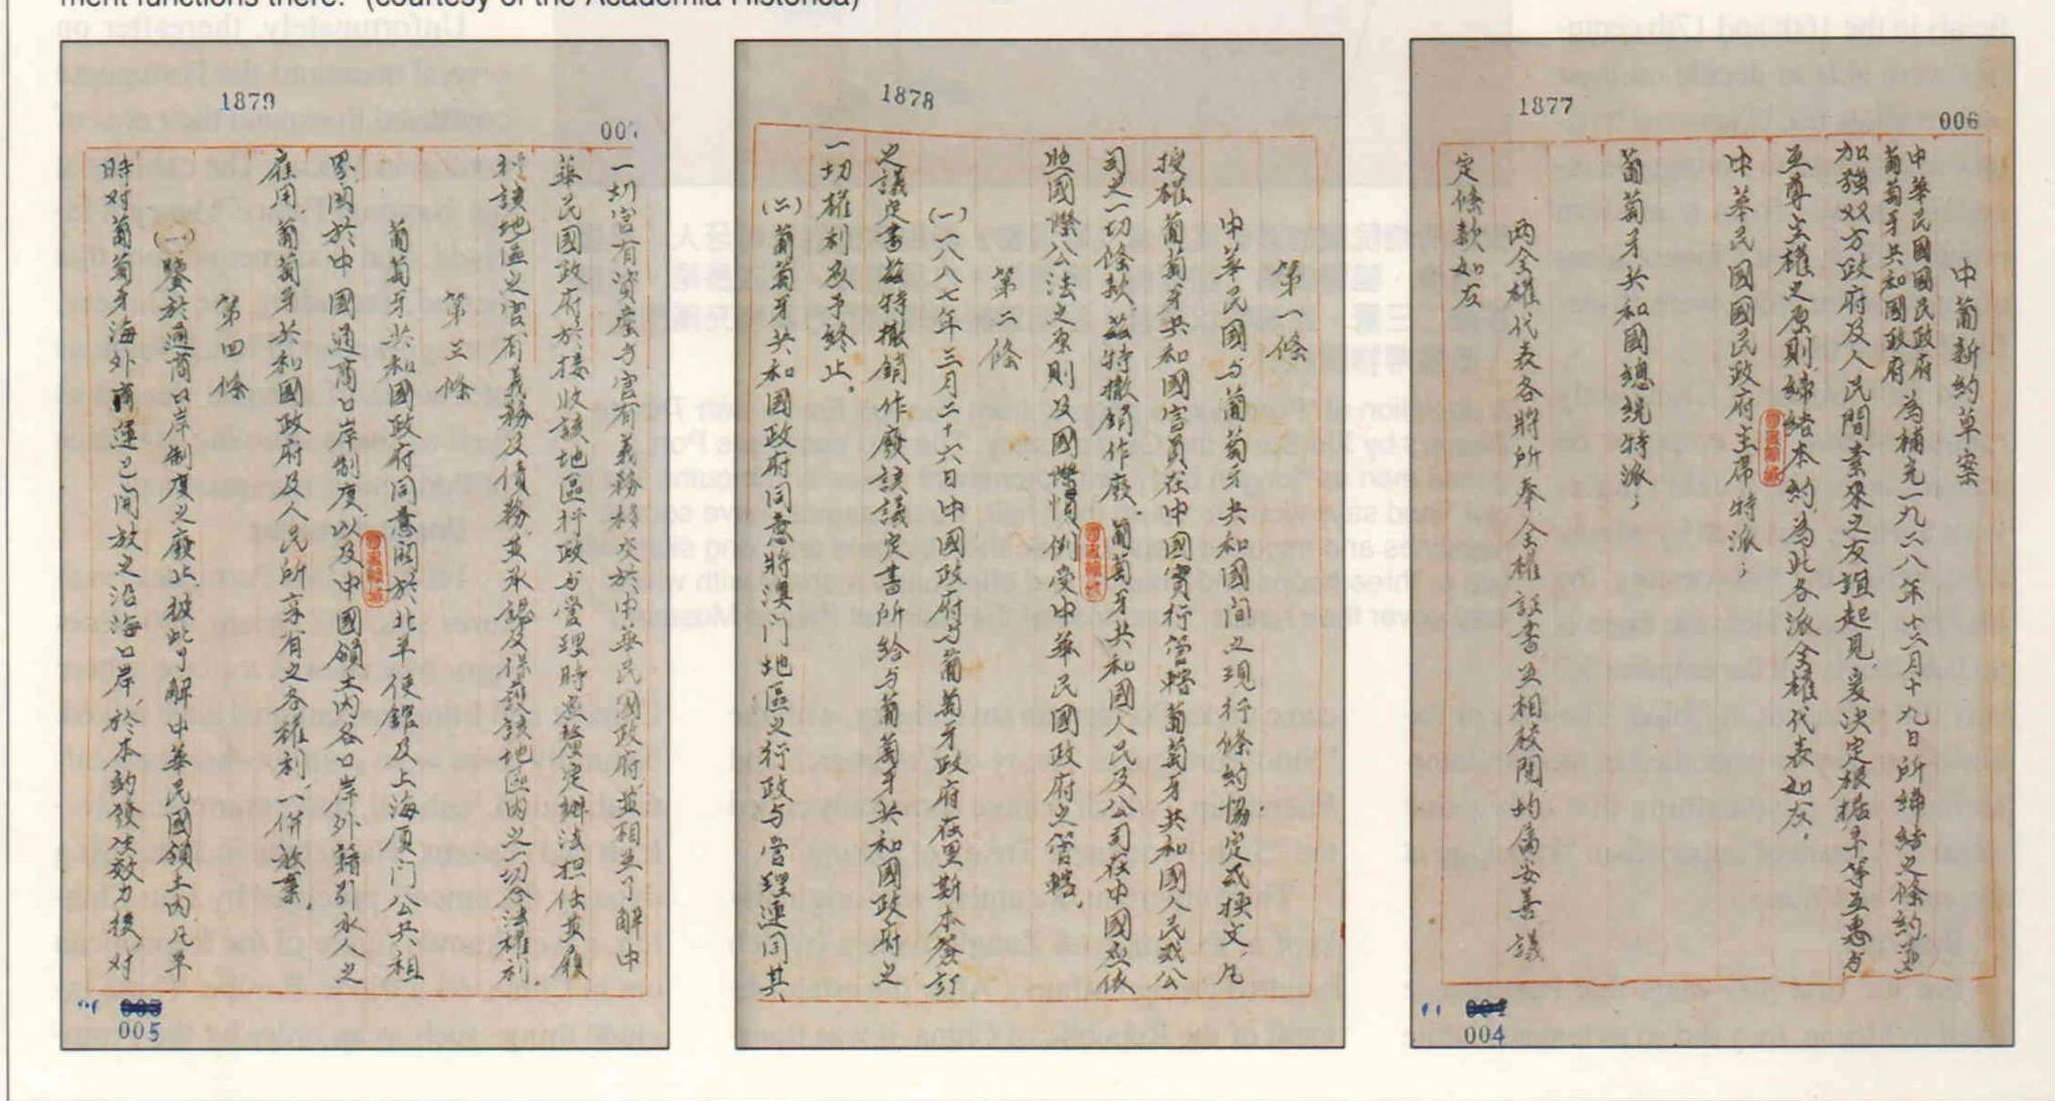 ment functions there. (courtesy of the Academia Historica)
1877
006
中葡新約草案
中華民國國民政府
葡萄牙共和國政府
為補充一九二八年十二月十九日所締結之條約並
加強双方政府及人民間素來之友誼起見,爰決定根據平等互惠与
互尊主權之原則,締結本約,為此各派全權代表如左,
中華民國國民政府主席特派;
葡萄牙共和國總統特派;
兩全權代表各將所奉全權証書互相校閱均屬妥善議
定條款如左
004
004
1878
第一條
中華民國与葡萄牙共和國間之現行條約協定或換文,凡
授權葡萄牙共和國官員在中國實行管轄葡萄牙共和國人民或公
司之一切條款,茲特撤銷作廢。葡萄牙共和國人民及公司在中國應依
照國際公法之原則及國際慣例受中華民國政府之管轄
第二條
(一)一八八七年三月二十六日中國政府与葡萄牙政府在里斯本簽訂
之議定書茲特撤銷作廢該議定書所給与葡萄牙共和國政府之
一切權利亥予終止。
(二)葡萄牙共和國政府同意將澳门地區之行政与管理連同其
1879
007
一切官有資產与官有義務移交於中華民國政府,並相互了解中
華民國政府於接收該地區行政与管理時應釐定辦法担任並履
行該地區之官有義務及債務,並承認及保護該地區內之一切合法權利。
第三條
葡萄牙共和國政府同意關於北平使館及上海厦门公共租
界關於中國通商口岸制度,以及中國領土內各口岸外籍引水人之
雇用,葡萄牙共和國政府及人民所享有之各權利,一併放棄。
第四條
(一)鑒於通商口岸制度之廢止,彼此了解中華民國領土內,凡平
時对葡萄牙海外商運已開放之沿海口岸,於本約發生效力後,对
005
005